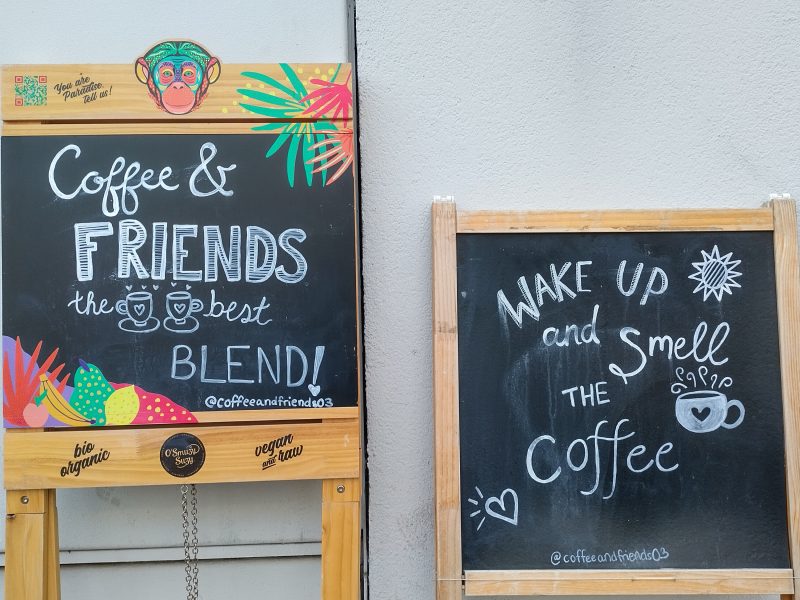 You are
Paradise.
tell us!
Coffee &
FRIENDS
the best
BLEND!
@coffeeandfriends03
bio
organic
O'Smuzy
Suzy
vegan
and raw
WAKE UP
and Smell
THE
Coffee
@coffeeandfriends03